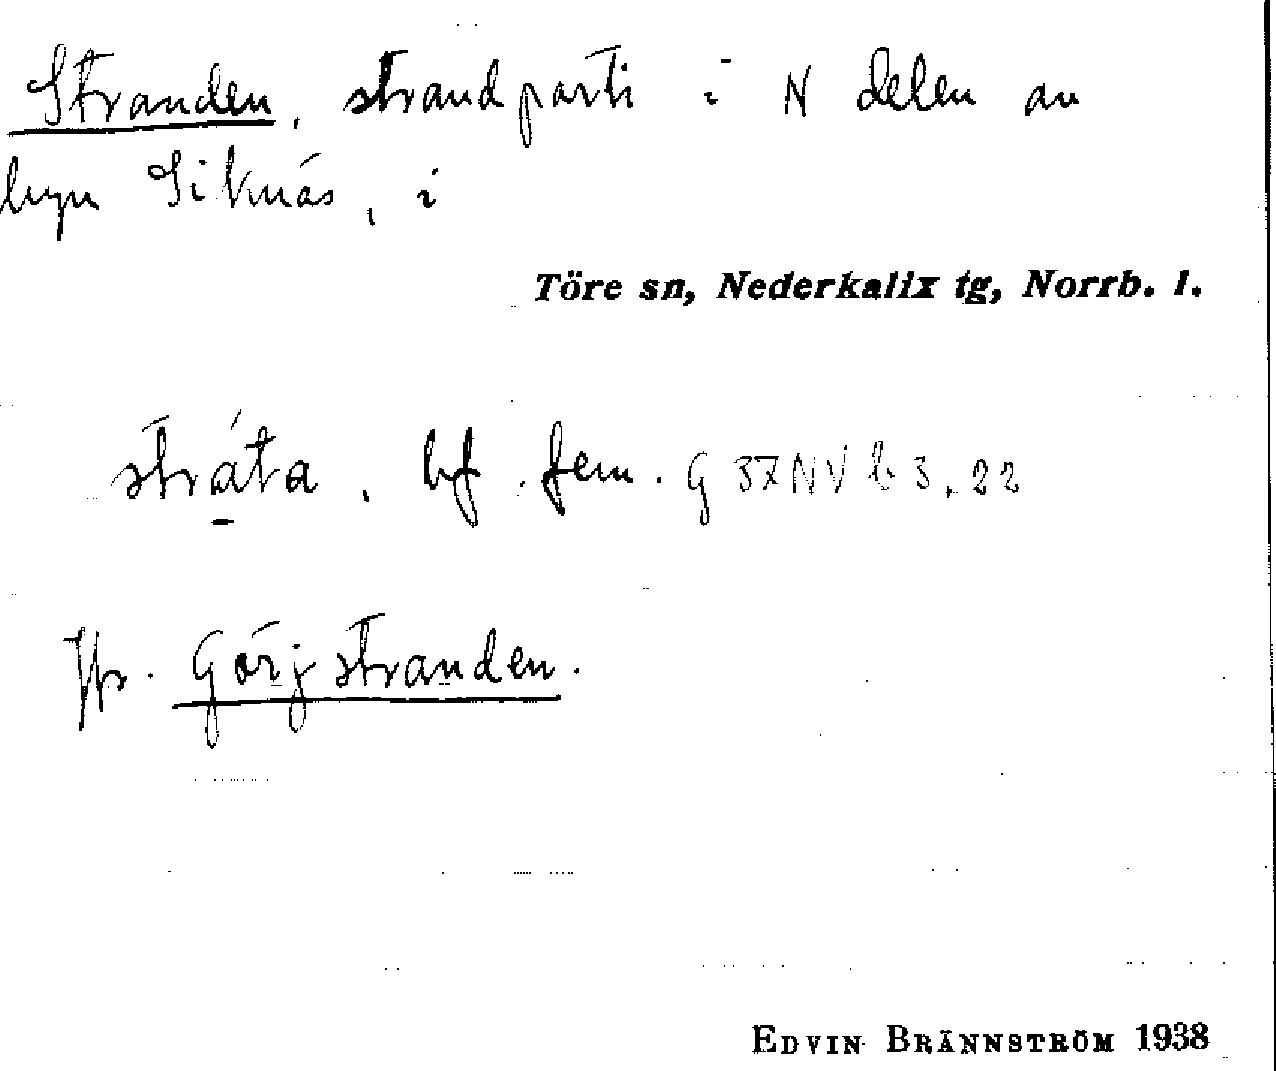 Stranden, strandparti i N delen av
byn Siknäs, i
Töre sn, Nederkalix tg, Norrb. l.
stráta, bf. fem. G 37 NV b 3, 22
Jfr. Görjstranden.
EDVIN BRÄNNSTRÖM 1938